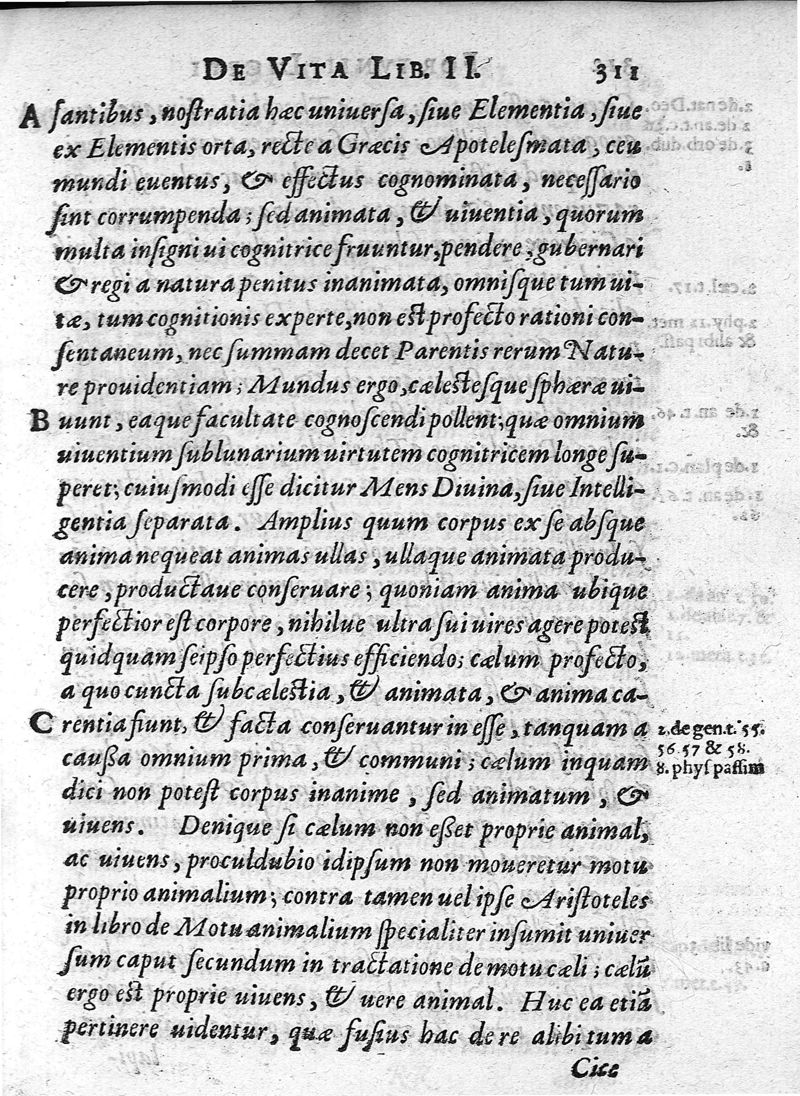 DE VITA LIB. II. 311
A ſantibus, noſtratia hæc univerſa, ſiue Elementia, ſiue
ex Elementis orta, recte a Græcis Apoteleſmata, ceu
mundi euentus, & effectus cognominata, neceſſario
ſint corrumpenda; ſed animata, & uiuentia, quorum
multa inſigni ui cognitrice fruuntur, pendere, gubernari
& regi a natura penitus inanimata, omniſque tum ui-
tæ, tum cognitionis experte, non eſt profecto rationi con-
ſentaneum, nec ſummam decet Parentis rerum Natu-
re prouidentiam; Mundus ergo, cæleſteſque ſphæræ ui-
B uunt, eaque facultate cognoſcendi pollent; quæ omnium
uiuentium ſublunarium uirtutem cognitricem longe ſu-
peret; cuiuſmodi eſſe dicitur Mens Diuina, ſiue Intelli-
gentia ſeparata. Amplius quum corpus ex ſe abſque
anima nequeat animas ullas, ullaque animata produ-
cere, productaue conſeruare; quoniam anima ubique
perfectior eſt corpore, nihilue ultra ſui uires agere poteſt
quidquam ſeipſo perfectius efficiendo; cælum profecto,
a quo cuncta ſubcæleſtia, & animata, & anima ca-
C rentia fiunt, & facta conſeruantur in eſſe, tanquam a
cauſſa omnium prima, & communi; cælum inquam
dici non poteſt corpus inanime, ſed animatum, &
uiuens. Denique ſi cælum non eſſet proprie animal,
ac uiuens, proculdubio idipſum non moueretur motu
proprio animalium; contra tamen uel ipſe Ariſtoteles
in libro de Motu animalium ſpecialiter inſumit uniuer
ſum caput ſecundum in tractatione de motu cæli; cælũ
ergo eſt proprie uiuens, & uere animal. Huc ea etiã
pertinere uidentur, quæ fuſius hac de re alibi tum a
Cice
2. de gen. t. 55.
56. 57 & 58.
8. phyſ paſſim